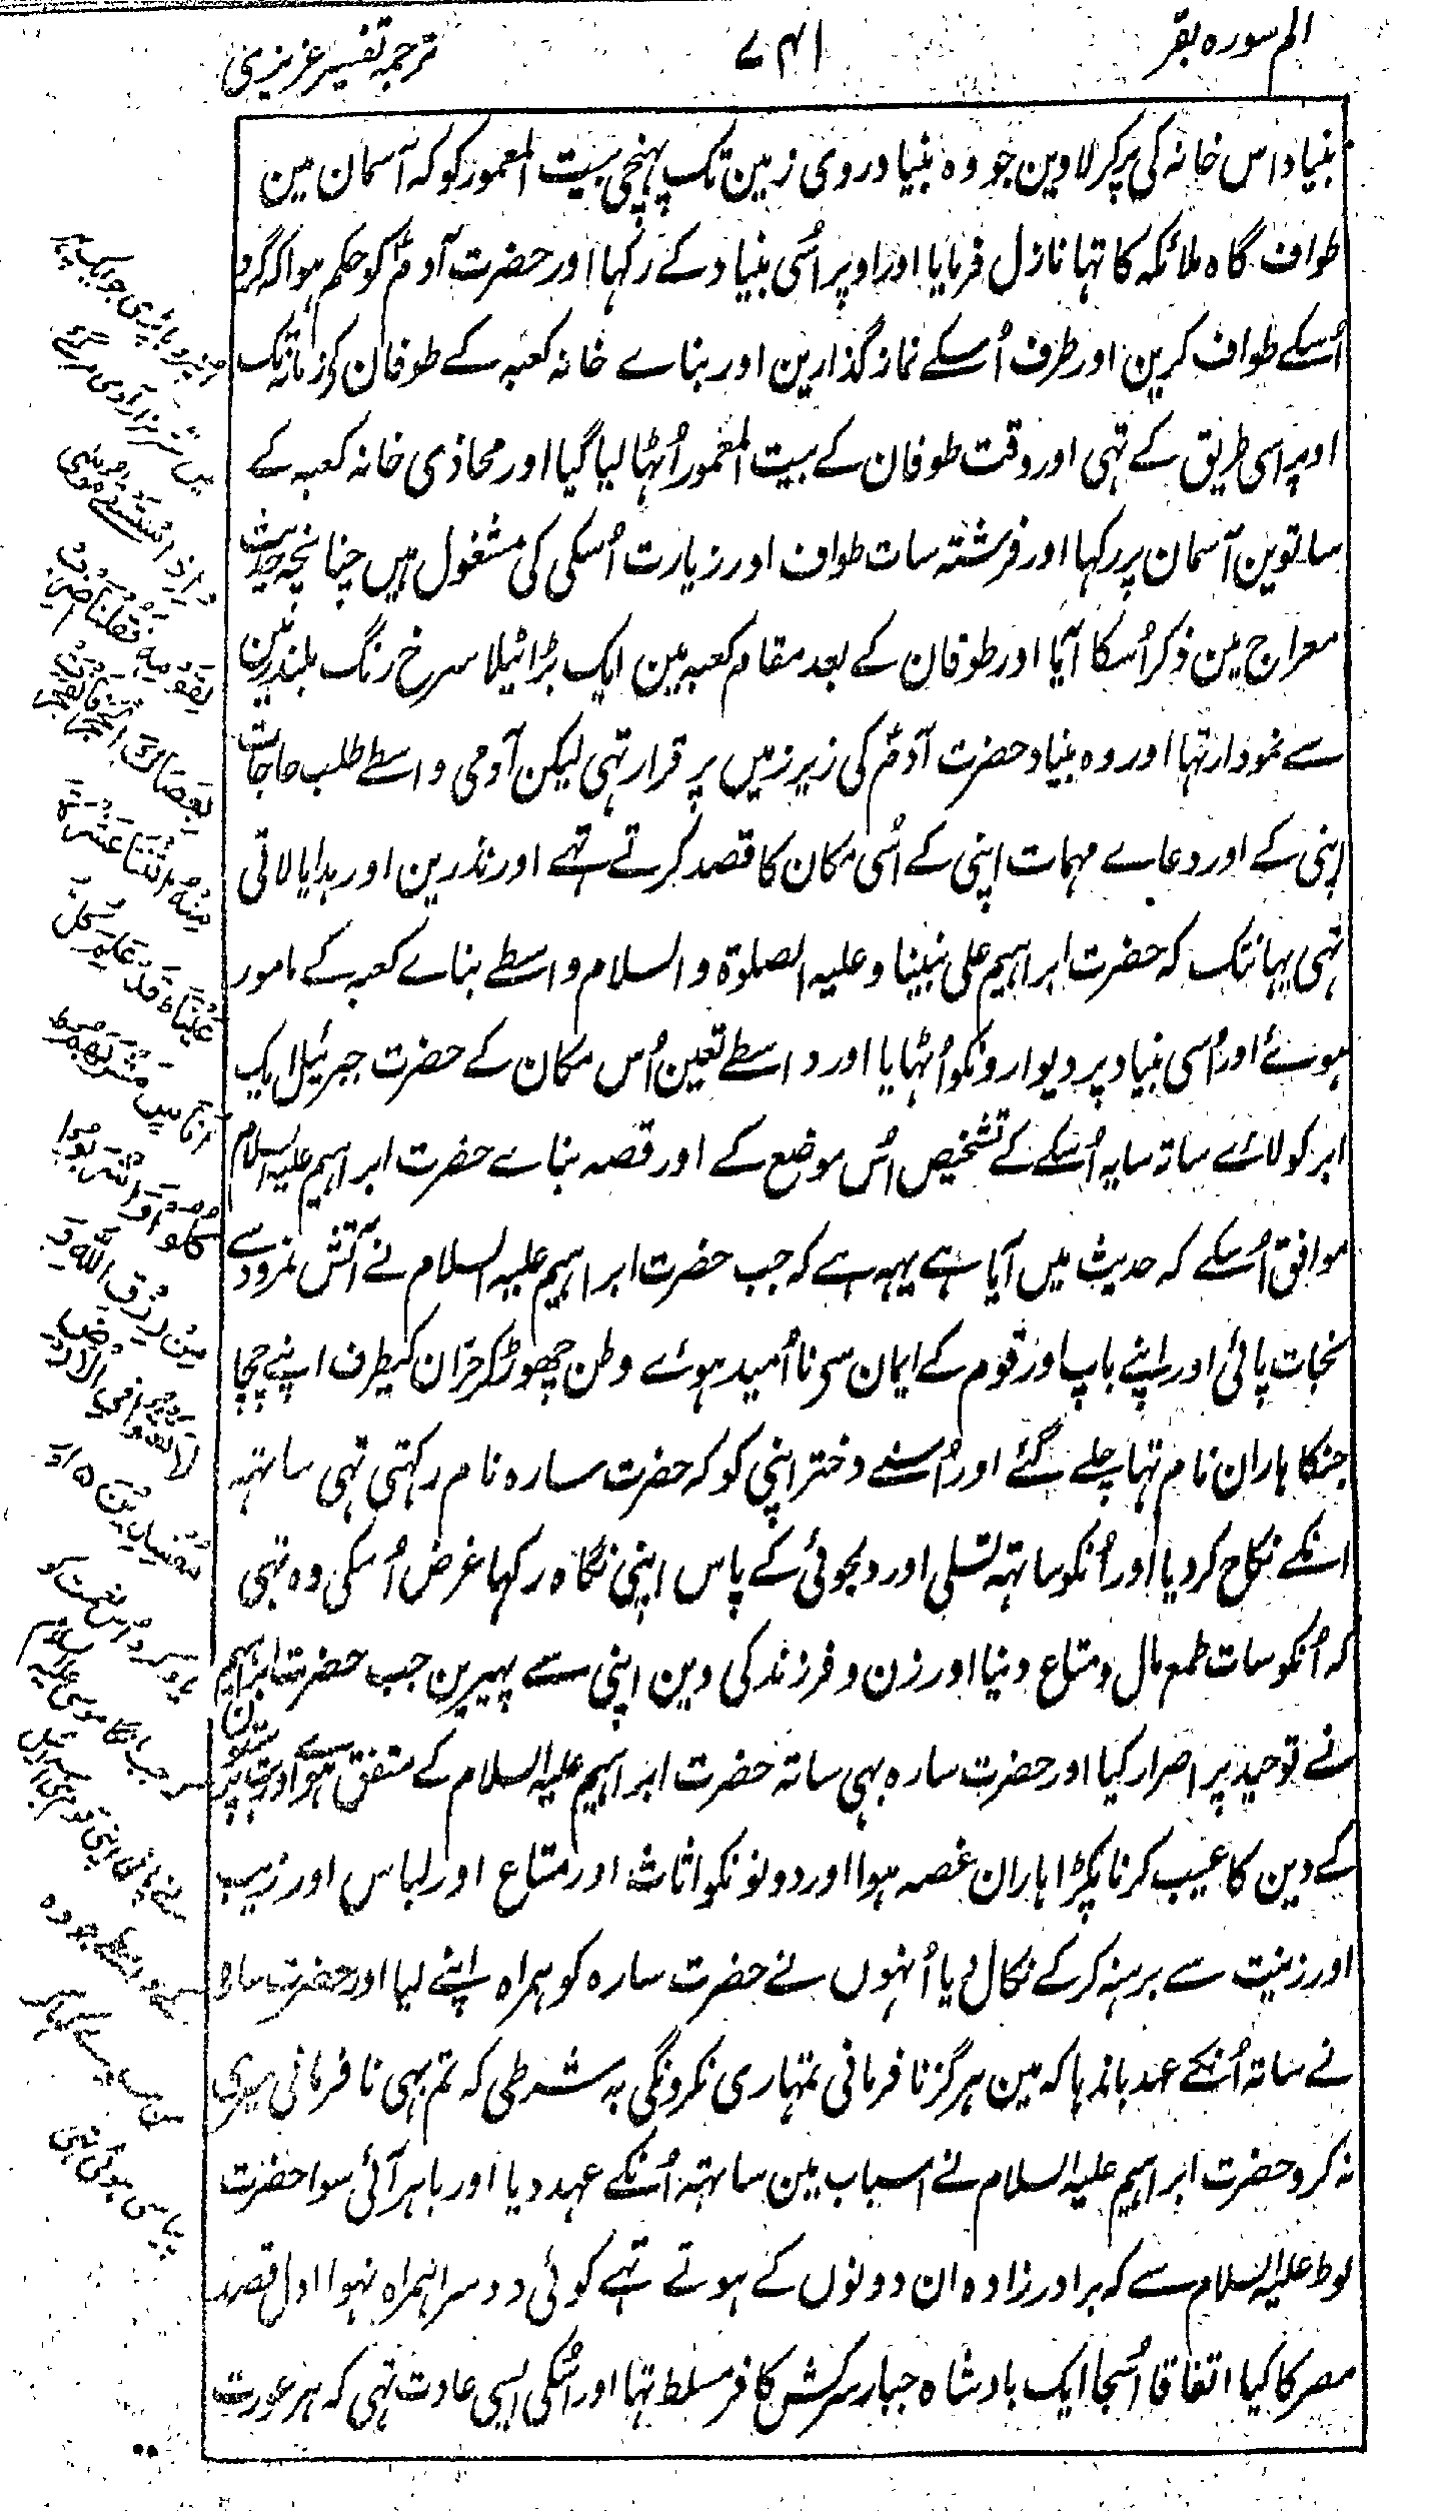 الم سورہ بقر
۷۴۱
ترجمہ تفسیر عزیزی
بنیاد اس خانہ کی پر کر لاوین جو وہ بنیاد روی زمین تک پہنچی بیت المعمور کو کہ آسمان مین
طواف گاہ ملائکہ کا تہا نازل فرمایا اور اوپر اسُی بنیاد کے رکہا اور حضرت آدمؑ کو حکم ہوا کہ گرد
اُسکے طواف کرین اور طرف اُسکے نماز گذارین اور بناے خانہ کعبہ کے طوفان کی زمانہ تک
اوپر اسی طریق کے تہی اور وقت طوفان کے بیت المعمور اُٹہا لیا گیا اور محاذی خانہ کعبہ کے
ساتوین آسمان پر رکہا اور فرشتہ سات طواف اور زیارت اُسکی کی مشغول ہیں چنانچہ حدیث
معراج مین ذکر اُسکا آیا اور طوفان کے بعد مقام کعبہ مین ایک بڑا ٹیلا سرخ رنگ بلند زمین
سے نمودار تہا اور وہ بنیاد حضرت آدمؑ کی زیر زمیں پر قرار تہی لیکن آدمی واسطے طلب حاجات
اپنی کے اور دعاے مہمات اپنی کے اُسی مکان کا قصد کرتے تہے اور نذرین اور ہدایا لاتی
تہی یہانتک کہ حضرت ابراہیم علی نبینا و علیہ الصلوۃ والسلام واسطے بناے کعبہ کے مامور
ہوئے اور اُسی بنیاد پر دیوارونکو اُٹہایا اور واسطے تعین اُس مکان کے حضرت جبرئیل ایک
ابر کو لائے ساتہ سایہ اُسکے کے تشخیص اُس موضع کے اور قصہ بناے حضرت ابراہیم علیہ السلام
موافق اُسکے کہ حدیث میں آیا ہے یہہ ہے کہ جب حضرت ابراہیم علیہ السلام نے آتش نمرود سے
نجات پائی اور اپنے باپ اور قوم کے ایمان سی نا اُمید ہوئے وطن چھوڑ کر حرّان کیطرف اپنے چچا
جنکا ہاران نام تہا چلے گئے اور اُسنے دختر اپنی کو کہ حضرت سارہ نام رکہتی تہی ساتہہ
انکے نکاح کر دیا اور اُنکو ساتہہ تسلی اور دلجوئی کے پاس اپنی نگاہ رکہا غرض اُسکی وہ تہی
کہ اُنکو سات طمع مال و متاع دنیا اور زن و فرزند کی دین اپنی سے پہیرین جب حضرت ابراہیم
نے توحید پر اصرار کیا اور حضرت سارہ بہی ساتہ حضرت ابراہیم علیہ السلام کے متفق ہوے اور بت پرستون
کے دین کا عیب کرنا پکڑا ہاران غصہ ہوا اور دونونکو اثاثہ اور متاع اور لباس اور زیب
اور زینت سے برہنہ کر کے نکال دیا اُنہوں نے حضرت سارہ کو ہمراہ اپنے لیا اور حضرت سارہ
نے ساتہ اُنکے عہد باندہا کہ مین ہرگز نافرمانی تمہاری نکرونگی بہ شرطی کہ تم بہی نافرمانی میری
نہ کرو حضرت ابراہیم علیہ السلام نے اسباب مین ساتہہ اُنکے عہد دیا اور باہر آئی سوا حضرت
لوط علیہ السلام سے کہ برادرزادہ ان دونوں کے ہوتے تہے کوئی دوسرا ہمراہ نہوا اول قصد
مصر کا کیا اتفاقا اُسجا ایک بادشاہ جبار سرکش کافر مسلط تہا اور اُسکی ایسی عادت تہی کہ ہر عورت
وَاِذِ اسْتَسْقٰی مُوْسٰی
لِقَوْمِہٖ فَقُلْنَا اضْرِبْ
بِعَصَاکَ الْحَجَرَ فَانْفَجَرَتْ
مِنْہُ اثْنَتَا عَشْرَۃَ
عَیْنًا قَدْ عَلِمَ کُلُّ
اُنَاسٍ مَشْرَبَہُمْ
کُلُوْا وَاشْرَبُوْا
مِنْ رِزْقِ اللّٰہِ وَ
لَا تَعْثَوْا فِی الْاَرْضِ
مُفْسِدِیْنَ ۵